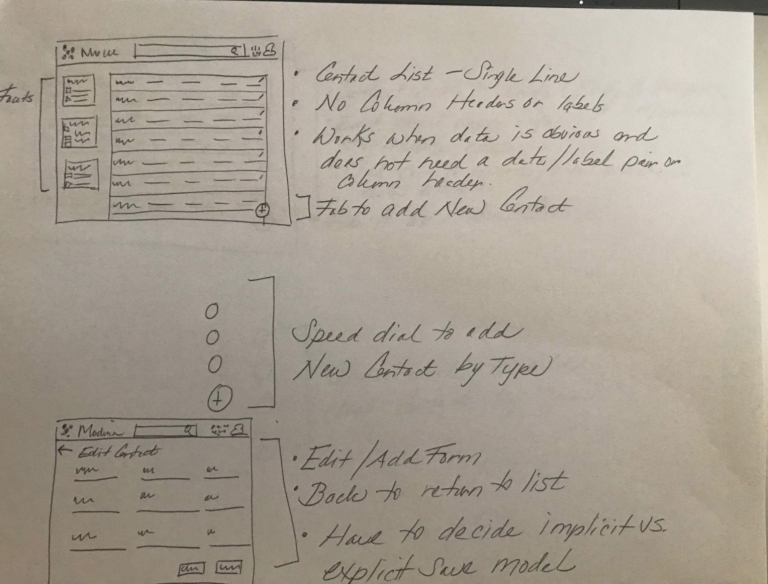 Contact List - Single Line
Facets
• No Column Headers or labels
• Works when data is obvious and
does not need a data/label pair or
Column header.
Fab to add New Contact
Speed dial to add
New Contact by Type
← Edit Contact
• Edit/Add Form
• Back to return to list
• Have to decide implicit vs.
explicit Save model